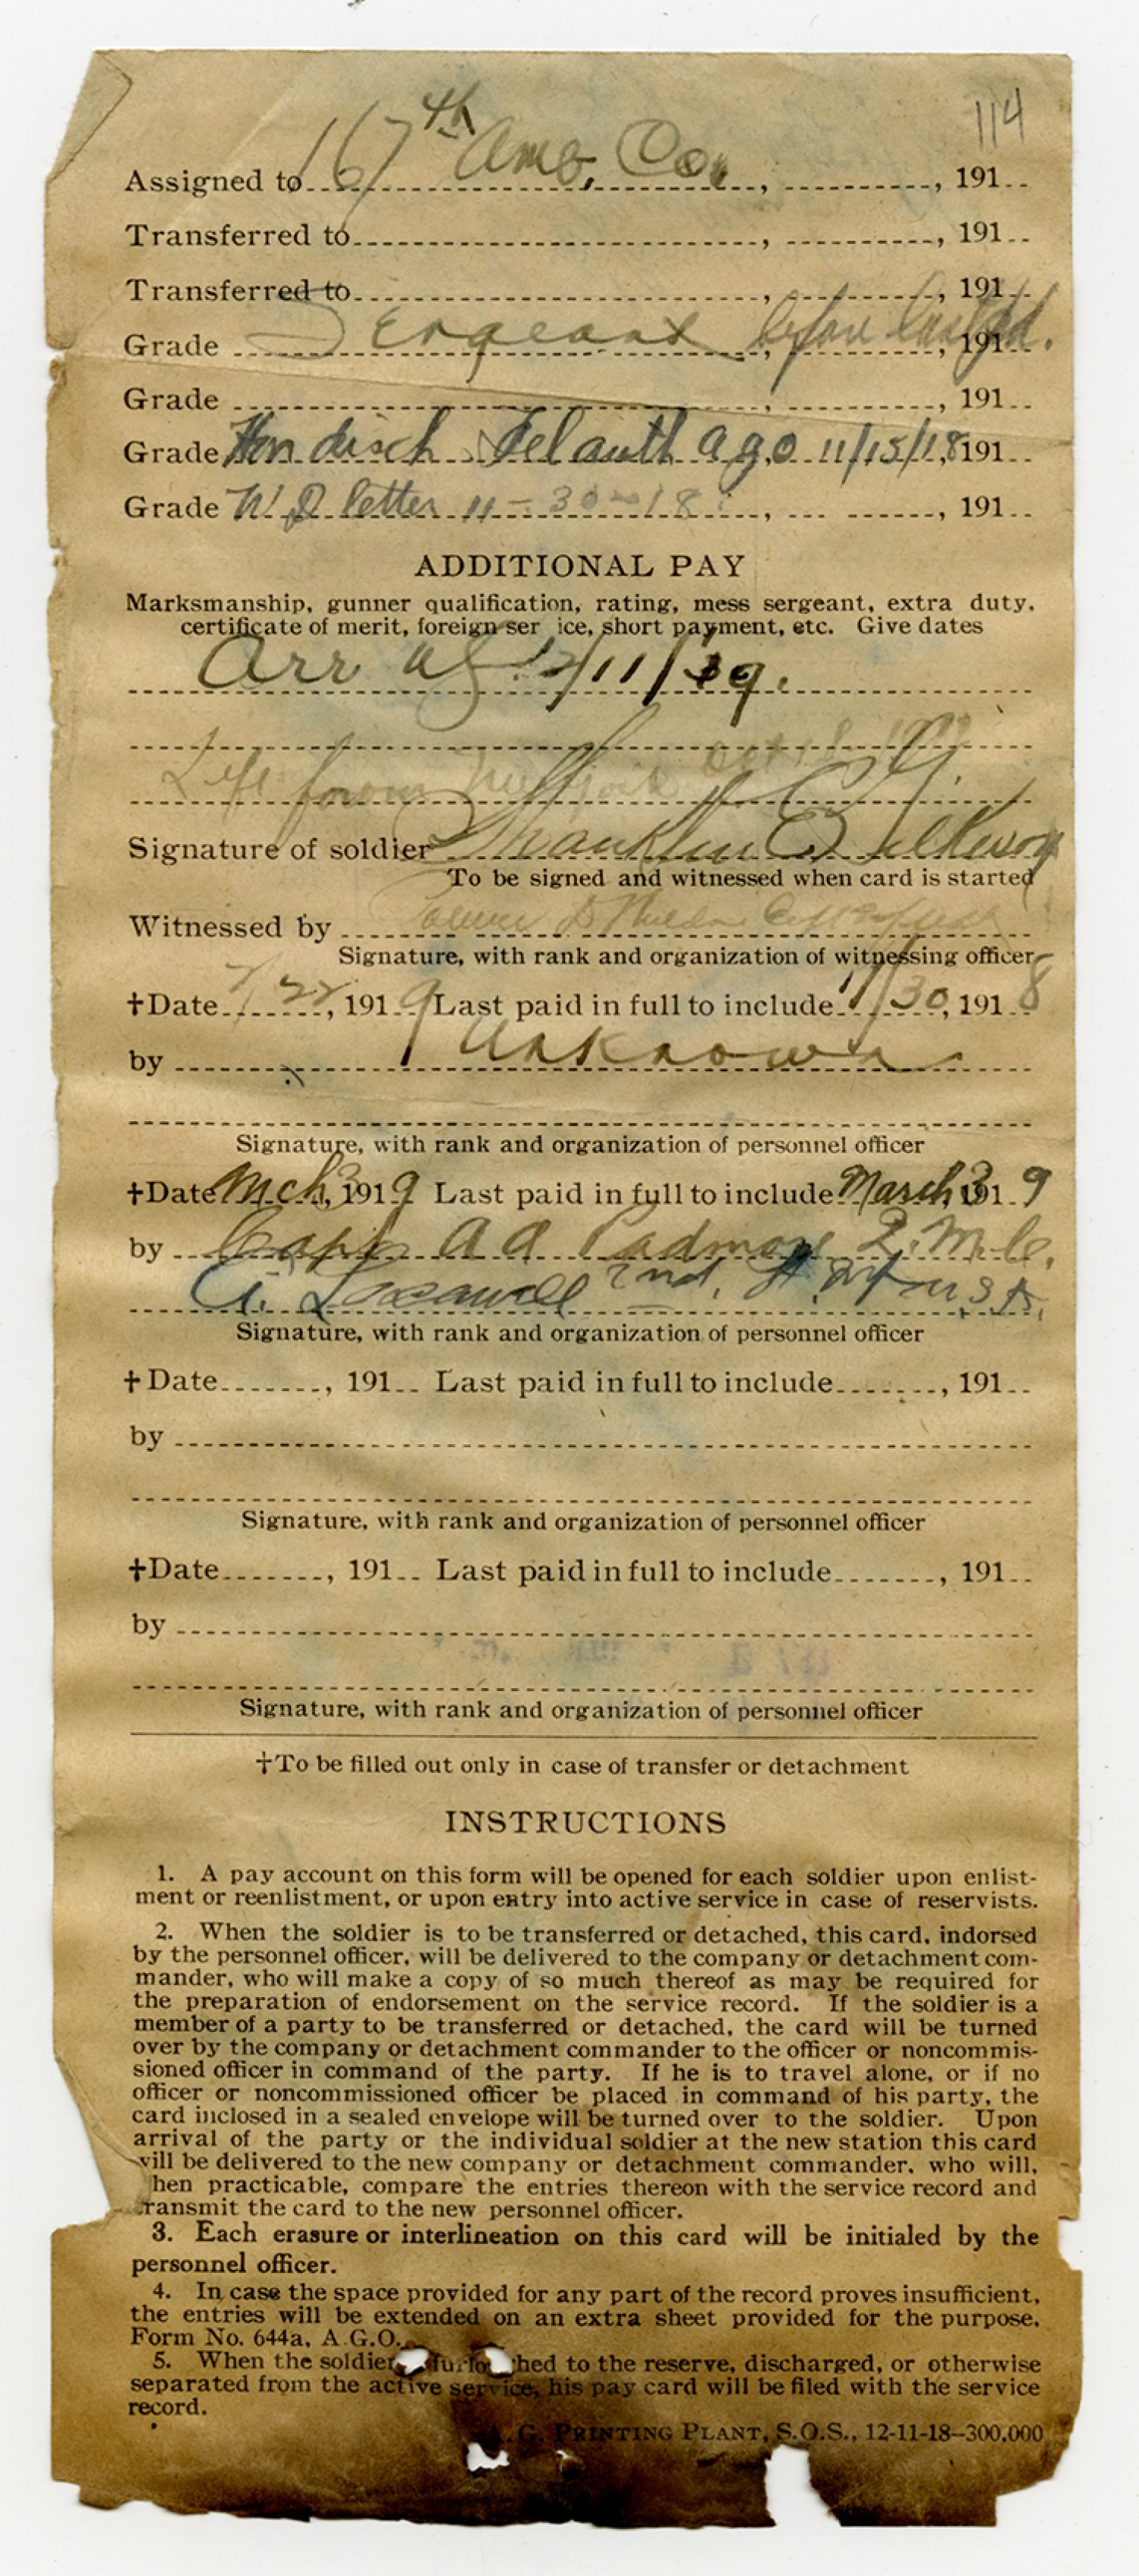 114
Assigned to 167th Amb. Co., , 191
Transferred to , , 191
Transferred to , , 191
Grade Sergeant before , 191
Grade , , 191
Grade Hon disch Tel auth a g o 11/15/18, 191
Grade W. D letter 11-30-18 , , 191
ADDITIONAL PAY
Marksmanship, gunner qualification, rating, mess sergeant, extra duty,
certificate of merit, foreign ser ice, short payment, etc. Give dates
Arr US 2/11/19.
Left from
Signature of soldier Franklin Gilkeson
To be signed and witnessed when card is started
Witnessed by
Signature, with rank and organization of witnessing officer
†Date 2/22, 1919 Last paid in full to include 11/30, 1918
by Unknown
Signature, with rank and organization of personnel officer
†Date Mch 3, 1919 Last paid in full to include March 3, 191 9
by Capt A A Padmore Q. M. C.
2nd. Lt. Inf U S A.
Signature, with rank and organization of personnel officer
†Date , 191 Last paid in full to include , 191
by
Signature, with rank and organization of personnel officer
†Date , 191 Last paid in full to include , 191
by
Signature, with rank and organization of personnel officer
†To be filled out only in case of transfer or detachment
INSTRUCTIONS
1. A pay account on this form will be opened for each soldier upon enlist-
ment or reenlistment, or upon entry into active service in case of reservists.
2. When the soldier is to be transferred or detached, this card, indorsed
by the personnel officer, will be delivered to the company or detachment com-
mander, who will make a copy of so much thereof as may be required for
the preparation of endorsement on the service record. If the soldier is a
member of a party to be transferred or detached, the card will be turned
over by the company or detachment commander to the officer or noncommis-
sioned officer in command of the party. If he is to travel alone, or if no
officer or noncommissioned officer be placed in command of his party, the
card inclosed in a sealed envelope will be turned over to the soldier. Upon
arrival of the party or the individual soldier at the new station this card
will be delivered to the new company or detachment commander, who will,
hen practicable, compare the entries thereon with the service record and
transmit the card to the new personnel officer.
3. Each erasure or interlineation on this card will be initialed by the
personnel officer.
4. In case the space provided for any part of the record proves insufficient,
the entries will be extended on an extra sheet provided for the purpose,
Form No. 644a, A.G.O.
5. When the soldier furlo hed to the reserve, discharged, or otherwise
separated from the active service, his pay card will be filed with the service
record.
A. G. PRINTING PLANT, S.O.S., 12-11-18--300,000